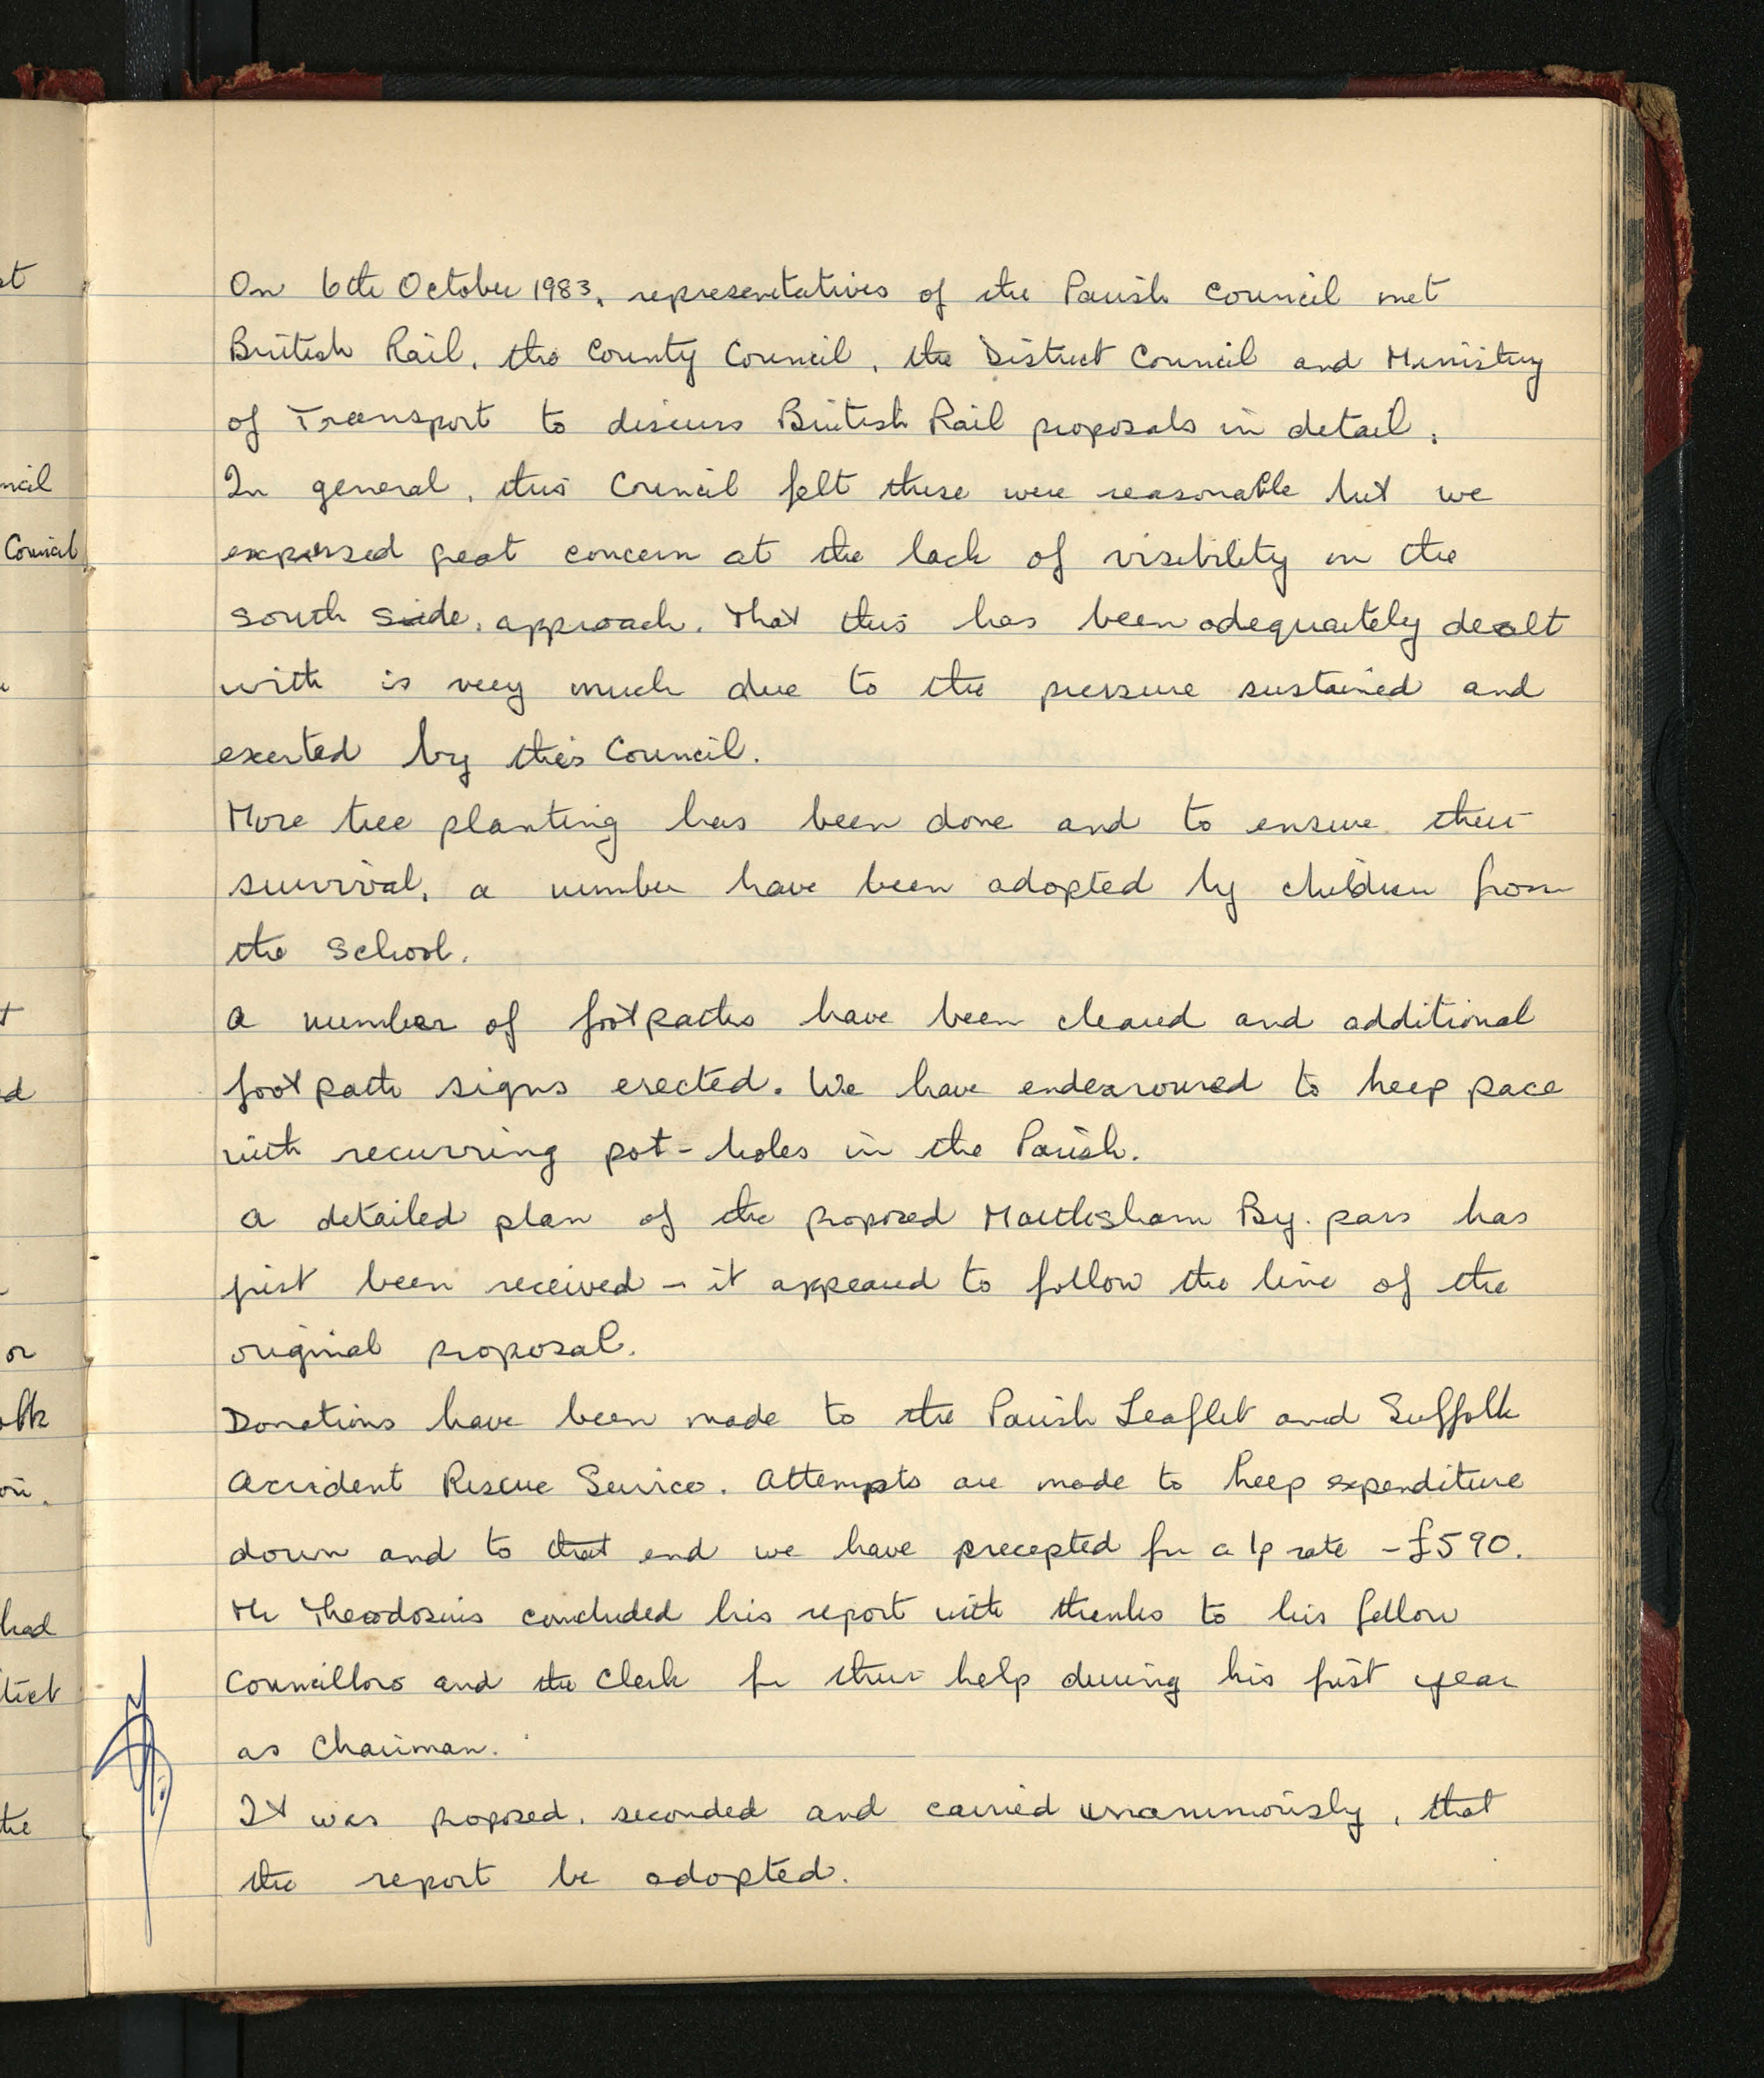 On 6th October 1983, representatives of the Parish Council met
British Rail, the County Council, the District Council and Ministry
of Transport to discuss British Rail proposals in detail.
In general, this Council felt these were reasonable but we
expressed great concern at the lack of visibility on the
south side approach. That this has been adequately dealt
with is very much due to the pressure sustained and
exerted by this Council.
More tree planting has been done and to ensure their
survival, a number have been adopted by children from
the School.
A number of footpaths have been cleared and additional
footpath signs erected. We have endeavoured to keep pace
with recurring pot-holes in the Parish.
A detailed plan of the proposed Martlesham By-pass has
just been received - it appeared to follow the line of the
original proposal.
Donations have been made to the Parish Leaflet and Suffolk
Accident Rescue Service. Attempts are made to keep expenditure
down and to that end we have precepted for a 1p rate - £590.
Mr Theodosius concluded his report with thanks to his fellow
Councillors and the Clerk for their help during his first year
as Chairman.
It was proposed, seconded and carried unanimously, that
the report be adopted.